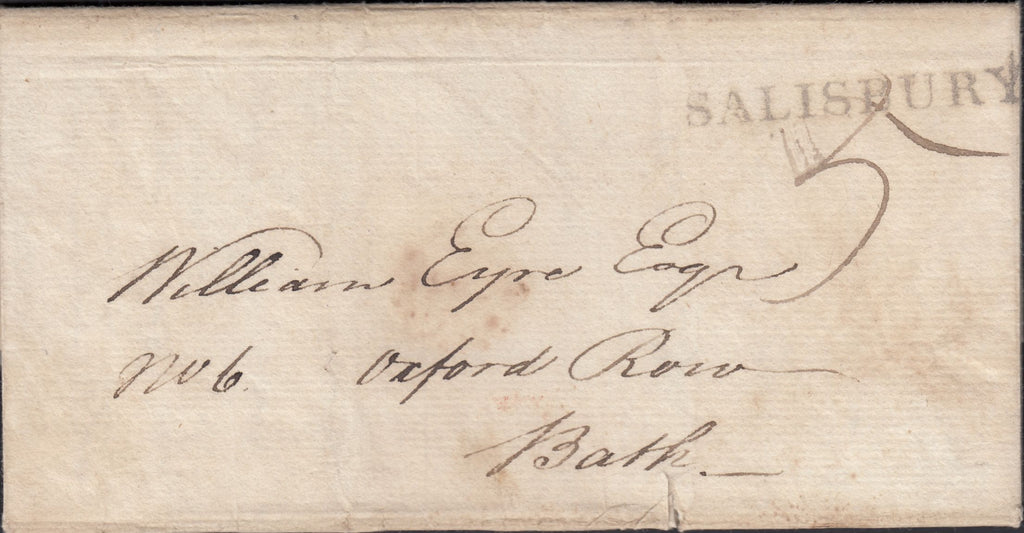 SALISBURY
5
William Eyre Esqr
No 6 Oxford Row
Bath